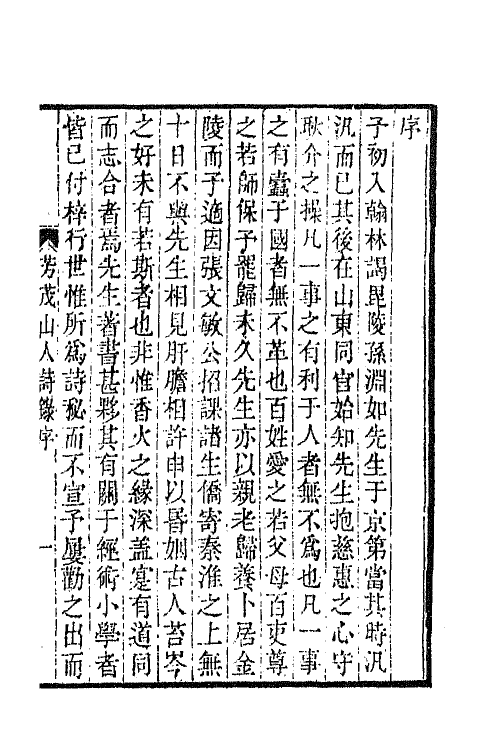 序
予初入翰林謁毘陵孫淵如先生于京第當其時汎
汎而已其後在山東同官始知先生抱慈惠之心守
耿介之操凡一事之有利于人者無不爲也凡一事
之有蠹于國者無不革也百姓愛之若父母百吏尊
之若師保予罷歸未久先生亦以親老歸養卜居金
陵而予適因張文敏公招課諸生僑寄秦淮之上無
十日不與先生相見肝膽相許申以昬姻古人苔岑
之好未有若斯者也非惟香火之緣深蓋寔有道同
而志合者焉先生著書甚夥其有關于經術小學者
皆已付梓行世惟所爲詩秘而不宣予屢勸之出而
芳茂山人詩錄序 一